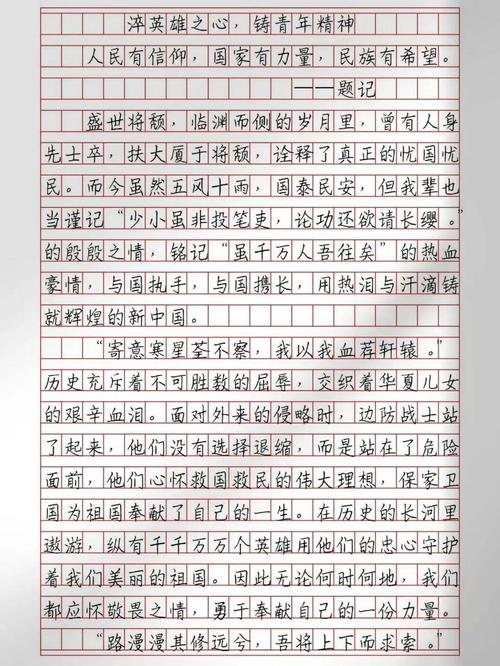 淬英雄之心，铸青年精神
人民有信仰，国家有力量，民族有希望。
——题记
盛世将颓，临渊而侧的岁月里，曾有人身
先士卒，扶大厦于将颓，诠释了真正的忧国忧
民。而今虽然五风十雨，国泰民安，但我辈也
当谨记“少小虽非投笔吏，论功还欲请长缨。”
的殷殷之情，铭记“虽千万人吾往矣”的热血
豪情，与国执手，与国携长，用热泪与汗滴铸
就辉煌的新中国。
“寄意寒星荃不察，我以我血荐轩辕。”
历史充斥着不可胜数的屈辱，交织着华夏儿女
的艰辛血泪。面对外来的侵略时，边防战士站
了起来，他们没有选择退缩，而是站在了危险
面前，他们心怀救国救民的伟大理想，保家卫
国为祖国奉献了自己的一生。在历史的长河里
遨游，纵有千千万万个英雄用他们的忠心守护
着我们美丽的祖国。因此无论何时何地，我们
都应怀敬畏之情，勇于奉献自己的一份力量。
“路漫漫其修远兮，吾将上下而求索。”